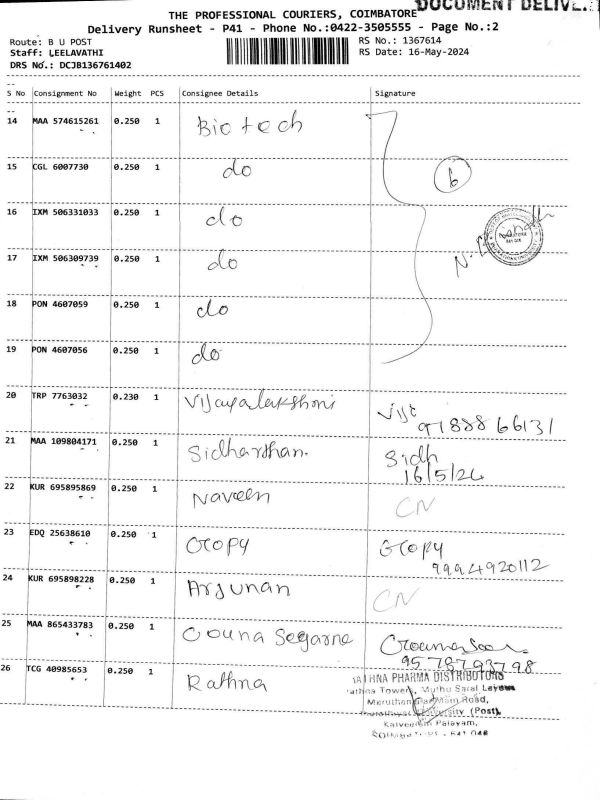 DOCUMENT DELIVE
THE PROFESSIONAL COURIERS, COIMBATORE
Delivery Runsheet - P41 - Phone No.:0422-3505555 - Page No.:2
Route: B U POST
RS No.: 1367614
Staff: LEELAVATHI
RS Date: 16-May-2024
DRS No.: DCJB136761402
S No Consignment No Weight PCS Consignee Details Signature
14 MAA 574615261 0.250 1 Biotech
15 CGL 6007730 0.250 1 do 6
16 IXM 506331033 0.250 1 do
17 IXM 506309739 0.250 1 do
18 PON 4607059 0.250 1 do
19 PON 4607056 0.250 1 do
20 TRP 7763032 0.230 1 Vijayalakshmi
21 MAA 109804171 0.250 1 Sidharthan. Sidh
16/5/24
22 KUR 695895869 0.250 1 Naveen CN
23 EDQ 25638610 0.250 1 Gropy Gropy
9994920112
24 KUR 695898228 0.250 1 Arjunan CN
25 MAA 865433783 0.250 1 Couna Segarne
95 787 93798
26 TCG 40985653 0.250 1 Rathna
RATHNA PHARMA DISTRIBUTORS
Rathna Towers, Muthu Saral Layout
Maruthamalai Main Road,
Bharathiyar University (Post),
Kalveeram Palayam,
COIMBATORE - 641 046